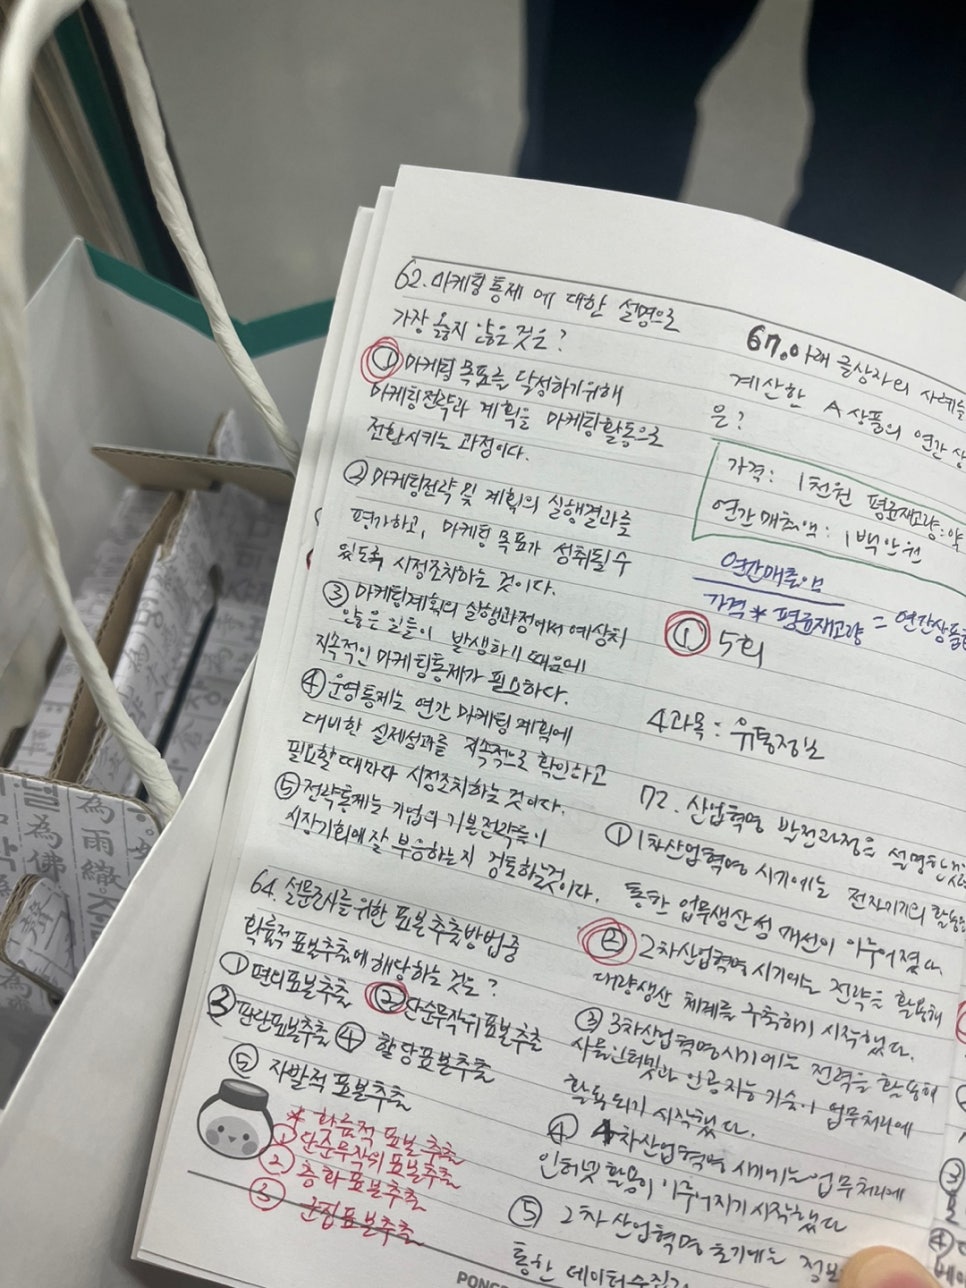 62. 마케팅통제에 대한 설명으로
가장 옳지 않은 것은?
① 마케팅 목표를 달성하기위해
마케팅전략과 계획을 마케팅활동으로
전환시키는 과정이다.
② 마케팅전략 및 계획의 실행결과를
평가하고, 마케팅 목표가 성취될 수
있도록 시정조치하는 것이다.
③ 마케팅계획의 실행과정에서 예상치
않은 일들이 발생하기 때문에
지속적인 마케팅통제가 필요하다.
④ 운영통제는 연간 마케팅 계획에
대비한 실제성과를 지속적으로 확인하고
필요할 때마다 시정조치하는 것이다.
⑤ 전략통제는 기업의 기본전략들이
시장기회에 잘 부응하는지 검토하는것이다.
64. 설문조사를 위한 표본추출방법 중
확률적 표본추출에 해당하는 것은?
① 편의표본추출 ② 단순무작위 표본추출
③ 판단표본추출 ④ 할당표본추출
⑤ 자발적 표본추출
* 확률적 표본추출
① 단순무작위 표본추출
② 층화표본추출
③ 군집표본추출
67. 아래 글상자의 사례를
계산한 A상품의 연간 상
은?
가격: 1천원 평균재고량: 약
연간매출액: 1백만원
연간매출액
가격 * 평균재고량 = 연간상품
① 5회
4과목: 유통정보
72. 산업혁명 발전과정을 설명한
① 1차산업혁명 시기에는 전자기기의 활용을
통한 업무생산성 개선이 이루어졌다
② 2차산업혁명 시기에는 전력을 활용해
대량생산 체계를 구축하기 시작했다.
③ 3차산업혁명시기에는 전력을 활용해
사물인터넷과 인공지능 기술이 업무처리에
활용되기 시작했다.
④ 4차산업혁명 시기에는 업무처리에
인터넷 활용이 이루어지기 시작했다
⑤ 2차 산업혁명 초기에는 정보
통한 데이터수집과